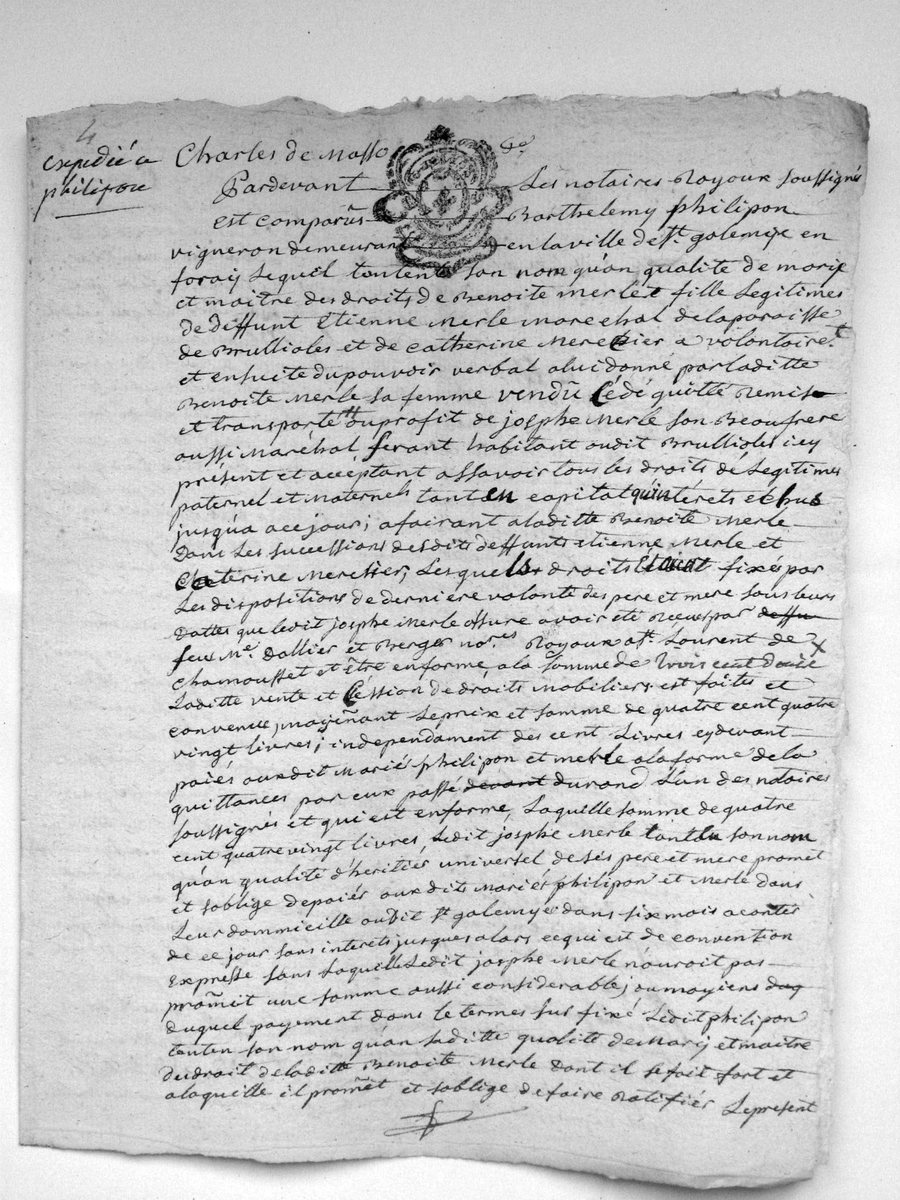 4
expedié a
philipon
Charles de Masso &a
Pardevant Les notaires Royaux soussignés
est comparûs Barthelemy philipon
vigneron demeurant en la ville de St galemye en
forais Lequel tout en son nom qu'an qualité de marie
et maitre des droits de Benoite merle fille Legitimes
de deffunt Etienne Merle Marechal de la paraisse
de Brullioles et de Catherine Mercier a volontairet
et ensuite du pouvoir verbal a lui donné par laditte
Benoite Merle sa femme vendû Cédé quitté Remis
et transporté au profit de josphe Merle son Beaufrere
aussi Maréchal ferant habitant audit Brullioles icy
présent et accéptant assavoir tous les droits de Legitimes
paternel et Maternels tant en capital qu'intérets échus
jusqua a ce jour; afairant a laditte Benoite Merle
dans Les successions desdits deffunts Etienne Merle et
Caterine Mercier, Lesquels droits Etaint fixés par
Les dispositions de derniére volonté des pere et mere sous leurs
dattes que ledit josphe Merle assure avoir été Recues par deffu
feux Me. dallier et Berger nores Royaux a St. Laurent de
chamousset et être en forme a la somme de trois cent douse
Laditte vente et Céssion de dréits mobiliers est faites et
convenue moyeñant Le prix et somme de quatre cent quatre
vingt livres; independament des cent Livres cy devant
paiés auxdit Mariés philipon et merle a la forme de la
quittances par eux passé devant durand L'un des notaires
soussignés et qui est en forme, Laquille somme de quatre
cent quatre vingt livres, Ledit josphe Merle tant en son nom
qu'an qualité d'heritier universel de sés pere et mere promet
et soblige de paiér auxdits Mariés philipon et Merle dans
Leur dommicille audit St galemye dans six mois a conter
de ce jour sans interets jusques alors ce qui est de convention
Expresse sans Laquille Ledit josphe Merle n'auroit pas
promit une somme aussi considerable; au moyiens duq
duquel payement dans le termes sus fixé Ledit philipon
tant en son nom qu'an saditte qualité de Mary et maitre
du droit de laditte Benoite Merle dont il se fait fort et
a laquille il promêt et soblige de faire Ratifiér Le present